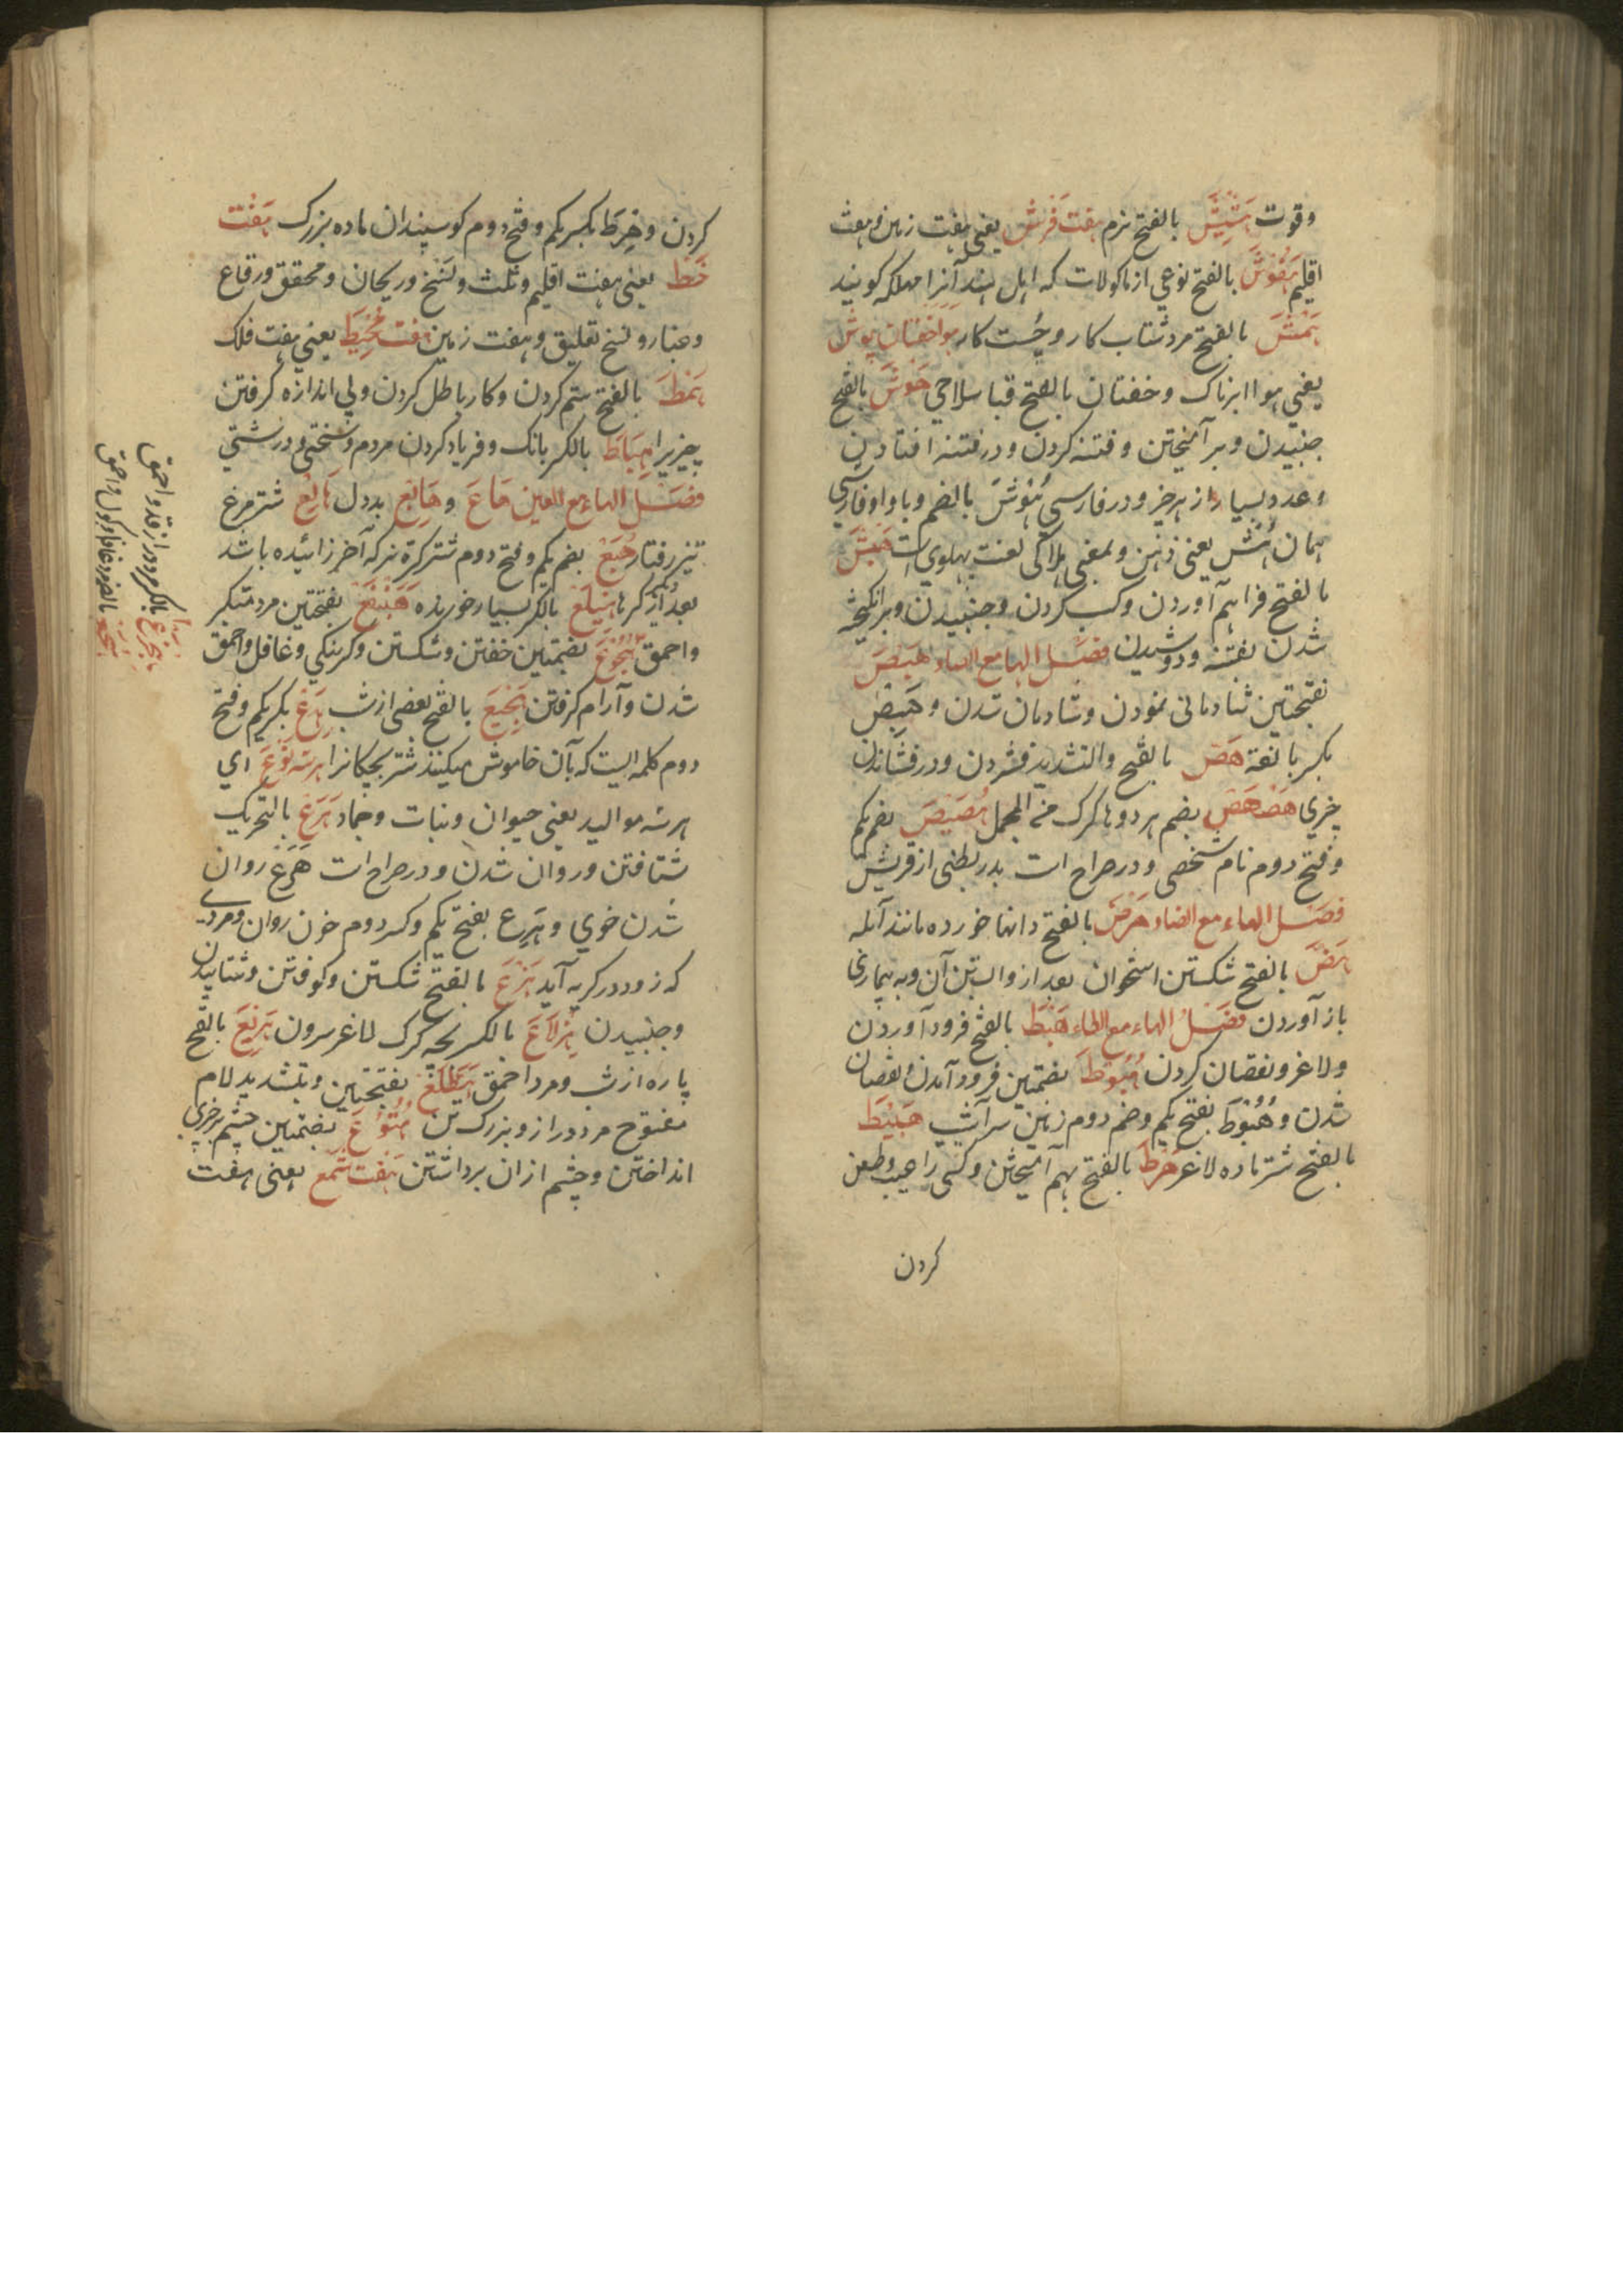 وقوت هَشِّيشَ بالفتح نرم هفت فَرش یعنی هفت زمین و هفت
اقلیم هَفُوشَ بالفتح نوعی از ماکولات که اهل هند آنرا مهلاکه کویند
هَمْشَ بالفتح مرد شتاب کار و چُست کار هوا خفتان پوش
یعنی هوا ابرناک و خفتان بالفتح قبا سلاحی هَوشَ بالفتح
جنبیدن و بر آمیختن و فتنه کردن و در فتنه افتادن
وعدد بسیار از هر چیز و در فارسی هُوْشَ بالضم و با واو فارسی
همان هُش یعنی ذهن و بمعنی هلاکی لغت پهلوی است هَبْشَ
بالفتح فراهم آوردن و کسب کردن و جنبیدن و برانکیخته
شدن بفتنه و دوشیدن فصَل الها مع الصاد هَبَصَ
بفتحتین شادمانی نمودن و شادمان شدن و هَبِصْ
بکسر بالغة هَصَ بالفتح والتشدید فشردن و در فشاندن
چیزی هُصْهُصْ بضم هر دو ها کرک منه المجمل هُصَیْصَ بضم یکم
و فتح دوم نام شخصی و در صراح است بدر بطنی از قریش
فصَل الهاء مع الضاد هَرَضَ بالفتح دانها خورده مانند آبله
هَضَ بالفتح شکستن استخوان بعد از وابستن آن و به بیماری
باز آوردن فصَلُ الهاء مع الطاء هَبْطَ بالفتح فرود آوردن
ولاغر و نقصان کردن هُبُوطَ بضمتین فرود آمدن و نقصان
شدن و هَبُوطَ بفتح یکم و ضم دوم زمین سرآشیب هَبِیْطَ
بالفتح شتر ماده لاغر هَرطَ بالفتح بهم آمیختن و کسی را عیب و طعن
کردن
کردن و هِرَطَ بکسر یکم و فتح دوم کوسپندان ماده بزرک هَفْت
خَط یعنی هفت اقلیم و ثلث و نَسَخ و ریحان و محقق و رقاع
وغبار و نسخ تعلیق و هفت زمین هفت مُحِیط یعنی هفت فلک
هَمَطَ بالفتح ستم کردن و کار باطل کردن و بی اندازه کرفتن
چیزیرا هِیَاطَ بالکسر بانک و فریاد کردن مردم و سختی و درشتی
فصَل الهاء مع العین هَاعَ و هَایِع بددل هَالِع شتر مرغ
تیز رفتار هُبَعْ بضم یکم و فتح دوم شتر کره نر که آخر زائیده باشد
بعد از کرما هِبْلَعْ بالکسر بسیار خورنده هَبَنْقَعْ بفتحتین مرد متکبر
واحمق هُجُوعَ بضمتین خفتن و شکستن و کرسنکی و غافل و احمق
شدن و آرام کرفتن هَجِیعَ بالفتح بعضی از شب هِدَعْ بکسر یکم و فتح
دوم کلمه ایست که بآن خاموش میکنند شتر بچکانرا هر سه نوع ای
هر سه موالید یعنی حیوان و نبات و جماد هَرَعْ بالتحریک
شتافتن و روان شدن و در صراح است هَرَعْ روان
شدن خوی و هَرِع بفتح یکم و کسر دوم خون روان و مردی
که زود در کریه آید هَزْعَ بالفتح شکستن و کوفتن و شتابیدن
و جنبیدن هِزْلَاعَ بالکسر بچه کرک لاغر سرون هَزِیْعَ بالفتح
پاره از شب و مرد احمق هَطَلَّعْ بفتحتین و بتشدید لام
مفتوح مرد دراز و بزرک تن هُتُوْاعَ بضمتین چشم بر چیزی
انداختن و چشم از ان برداشتن هفت شمع یعنی هفت
هِجْرَعْ بالکسر مرد دراز قد و احمق
هُجَعَ بالضم مرد غافل و کول و احمق